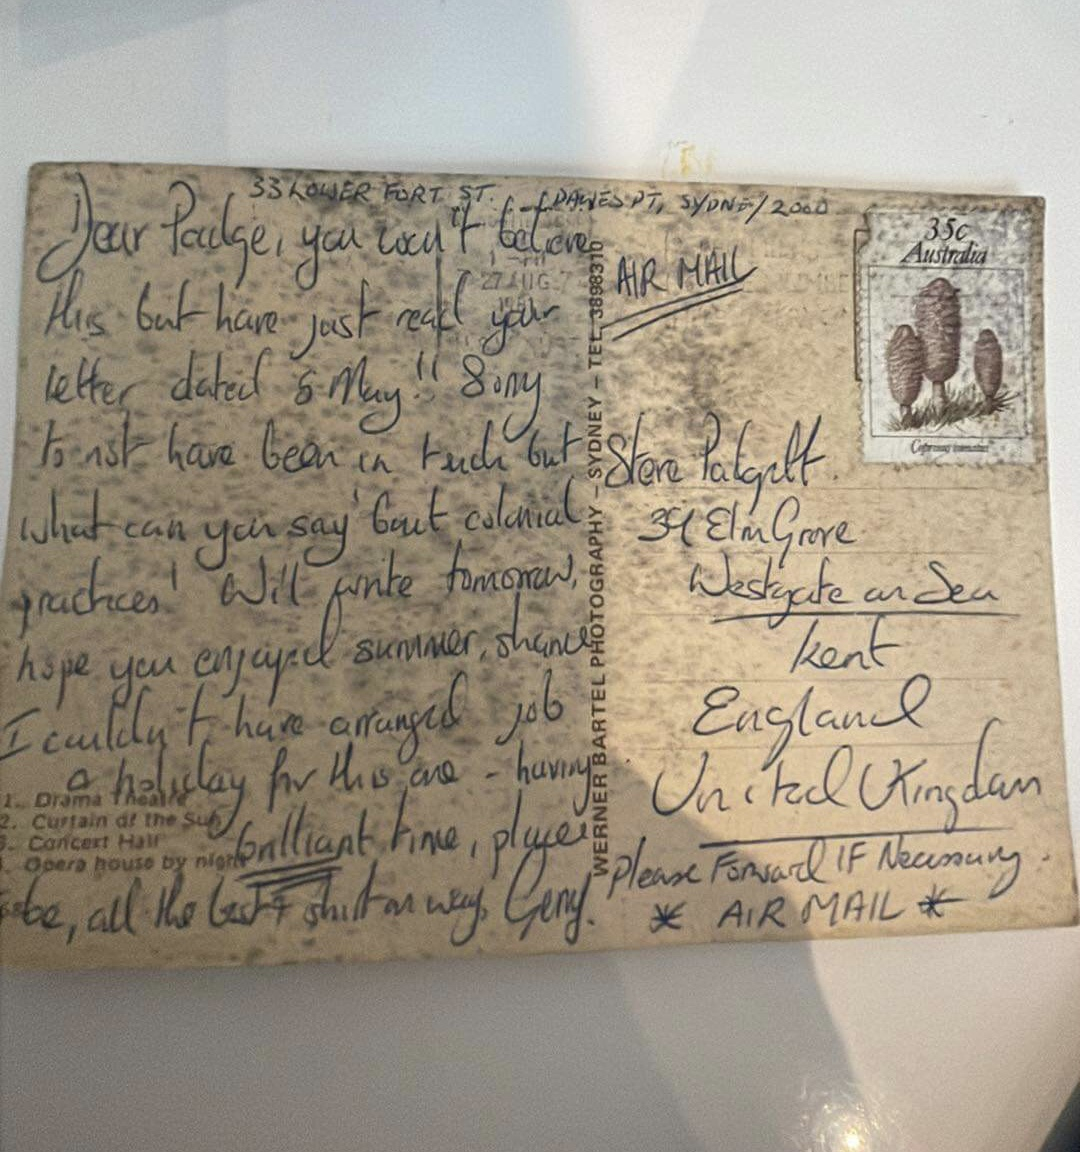 33 LOWER FORT ST. DAWES PT, SYDNEY 2000
Dear Padge, you won't believe
this but have just read your
letter dated 5 May!! Sorry
to not have been in touch but
what can you say 'bout colonial
practices! Will write tomorrow,
hope you enjoyed summer, shame
I couldn't have arranged job
a holiday for this one - having
brilliant time, place
be, all the best & shirt on way, Gerry.
1. Drama Theatre
2. Curtain of the Sun
3. Concert Hall
Opera house by night
WERNER BARTEL PHOTOGRAPHY – SYDNEY – TEL. 3898310
27 AUG
35c
Australia
AIR MAIL
Steve Padgett
39 Elm Grove
Westgate on Sea
Kent
England
United Kingdom
Please Forward IF Necessary.
* AIR MAIL *